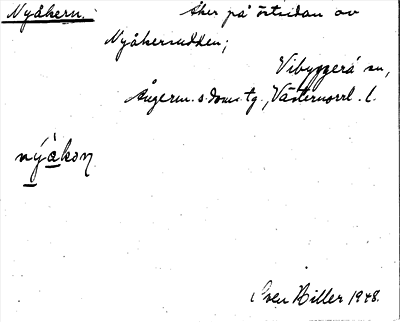 Nyåkern. Åker på östsidan av
Nyåkersudden;
Vibyggerå sn,
Ångerm. s. doms. tg., Västernorrl. l.
nýåkoɳ
Sven Hiller 1948.